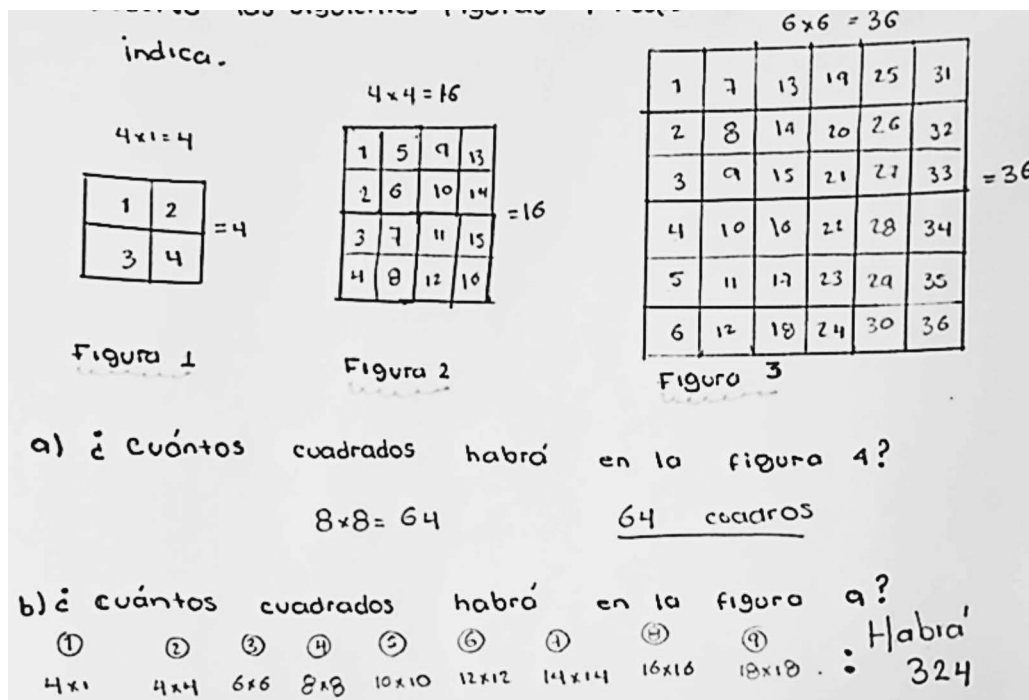 indica.
6x6 = 36
4x4 = 16
4x1 = 4
1 2
3 4
= 4
1 5 9 13
2 6 10 14
3 7 11 15
4 8 12 16
= 16
1 7 13 19 25 31
2 8 14 20 26 32
3 9 15 21 27 33
4 10 16 22 28 34
5 11 17 23 29 35
6 12 18 24 30 36
= 36
Figura 1
Figura 2
Figura 3
a) ¿ Cuántos cuadrados habrá en la figura 4?
8x8 = 64 64 cuadros
b) ¿ cuántos cuadrados habrá en la figura 9?
① ② ③ ④ ⑤ ⑥ ⑦ ⑧ ⑨
4x1 4x4 6x6 8x8 10x10 12x12 14x14 16x16 18x18 . : Habrá
324